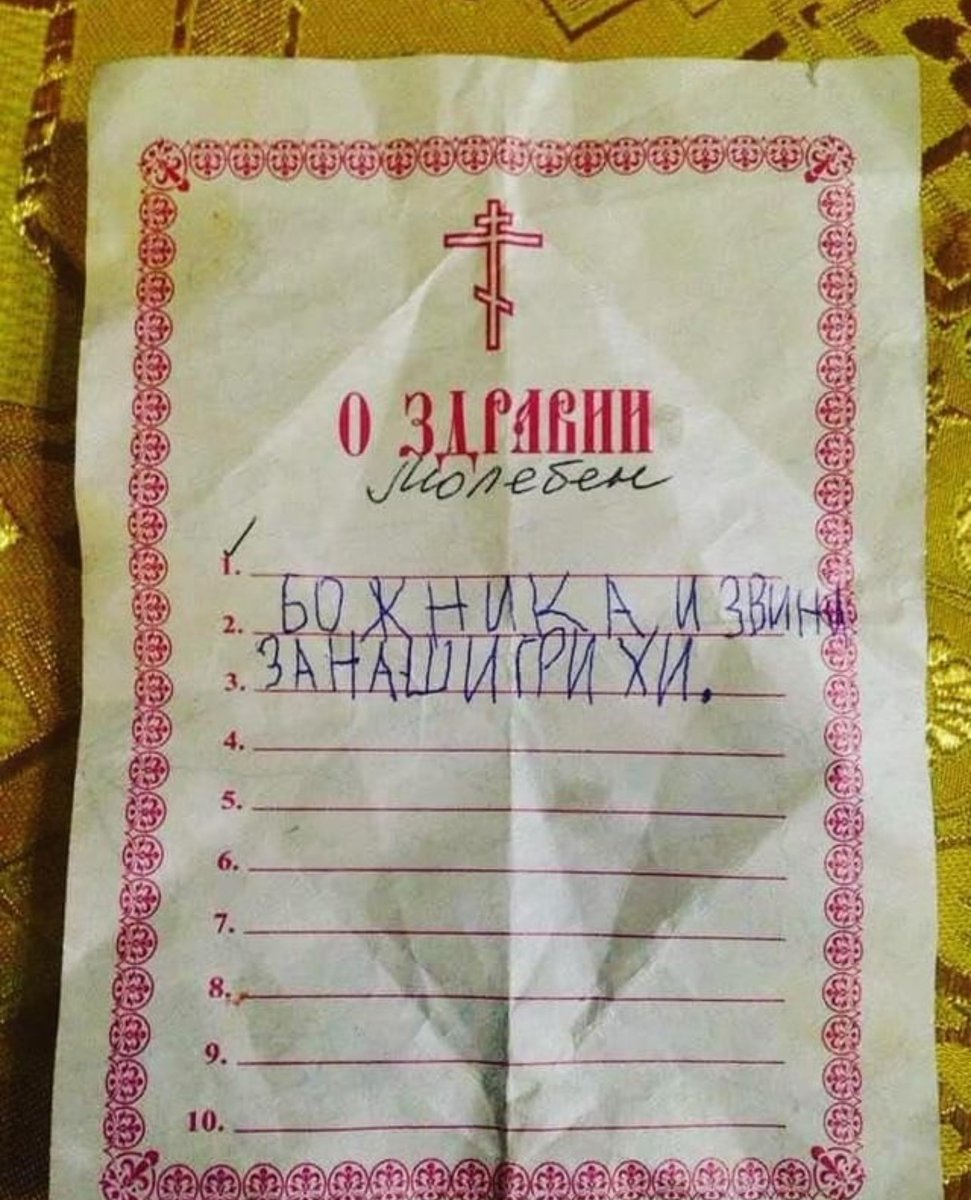 О ЗДРАВИИ
Молебен
1.
2. БОЖНИКА ИЗВИНИ
3. ЗАНАШИГРИХИ.
4.
5.
6.
7.
8.
9.
10.